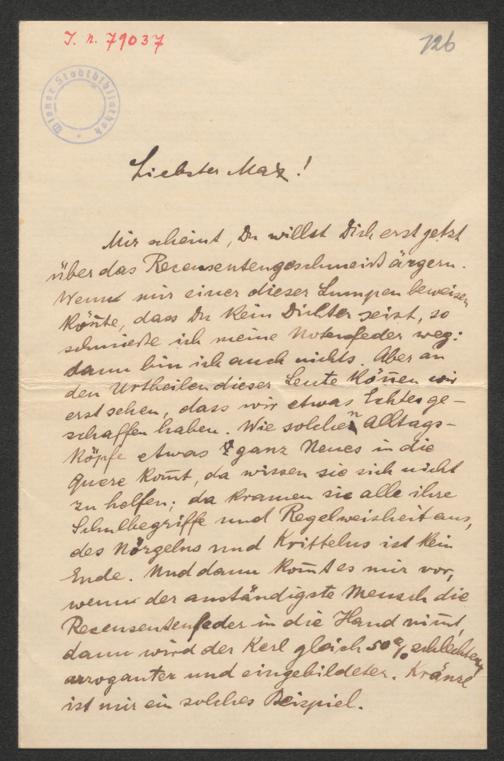 I. n. 79037
126
Wiener Stadtbibliothek
Liebster Max!
Mir scheint, Du willst Dich erst jetzt
über das Recensentengeschmeiß ärgern.
Wenn mir einer dieser Lumpen beweisen
könnte, dass Du kein Dichter seist, so
schmieße ich meine Notenfeder weg:
dann bin ich auch nichts. Aber an
den Urtheilen dieser Leute können wir
erst sehen, dass wir etwas Echtes ge-
schaffen haben. Wie solchen Alltags-
köpfe etwas ganz Neues in die
Quere kom̄t, da wissen sie sich nicht
zu helfen; da kramen sie alle ihre
Schulbegriffe und Regelweisheit aus,
des Nörgelns und Krittelns ist kein
Ende. Und dann kom̄t es mir vor,
wenn der anständigste Mensch die
Recensentenfeder in die Hand nim̄t
dann wird der Kerl gleich 50% schlechter,
arroganter und eingebildeter. Kränzl
ist mir ein solches Beispiel.